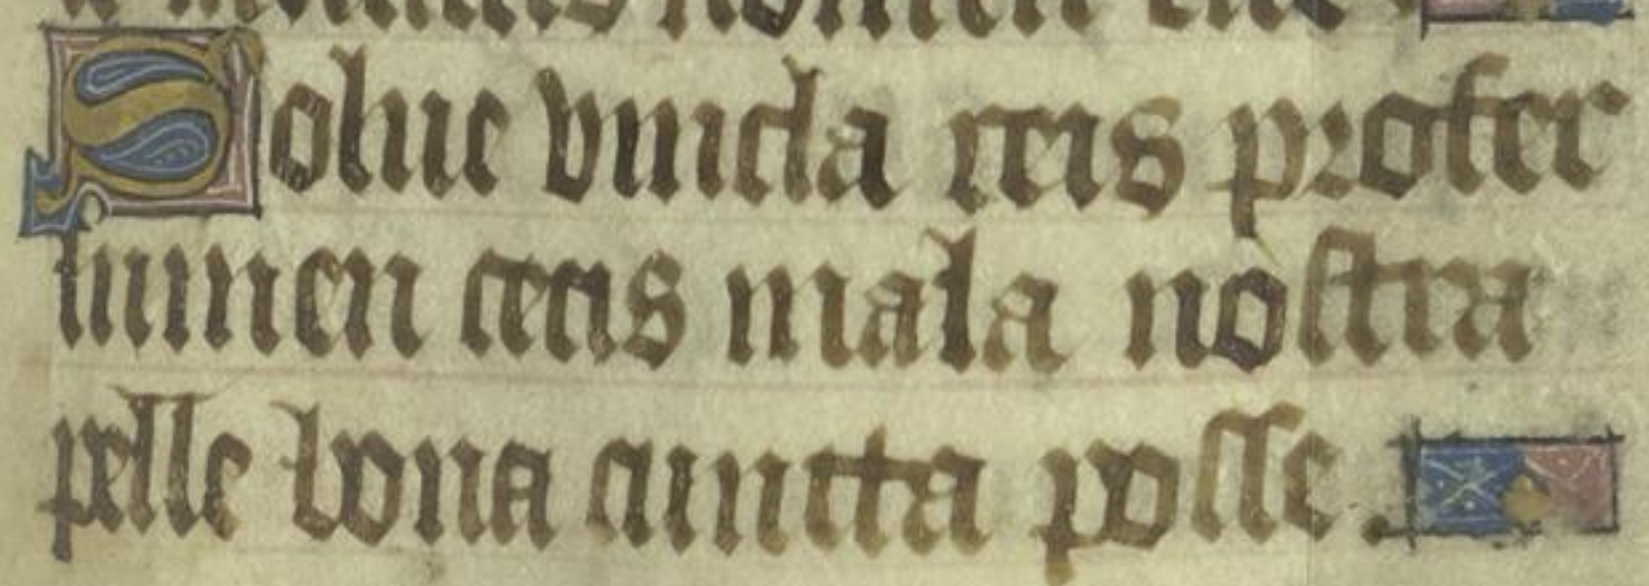 mutans nomen eue.
Solue vincla reis profer
lumen cecis mala nostra
pelle bona cuncta posse.